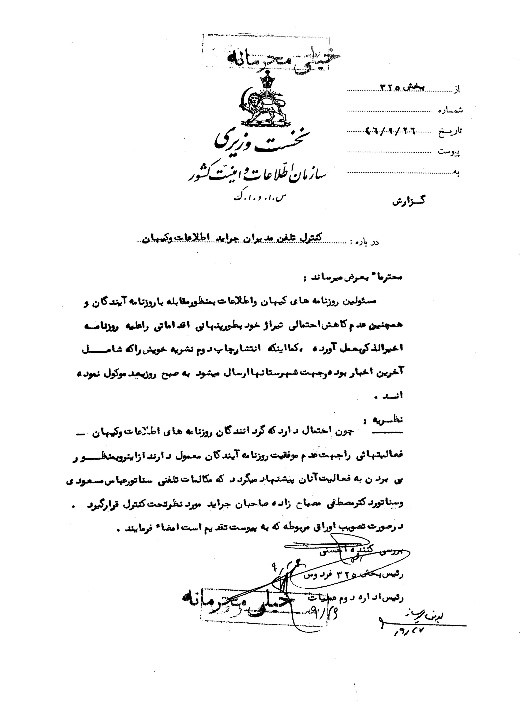 خیلی محرمانه
از بخش ۳۲۵
شماره
تاریخ ۴۶/۹/۲۶
پیوست
به
نخست وزیری
سازمان اطلاعات و امنیت کشور
س.ا.و.ا.ک
گزارش
درباره : کنترل تلفن مدیران جراید اطلاعات وکیهان
محترما" بعرض میرساند :
مسئولین روزنامه های کیهان واطلاعات بمنظورمقابله باروزنامه آیندگان و
همچنین عدم کاهش احتمالی تیراژ خود بطورپنهانی اقداماتی راعلیه روزنامه
اخیرالذکربعمل آورده ، کمااینکه انتشارچاپ دوم نشریه خویش راکه شامل
آخرین اخبار بوده وجهت شهرستانهاارسال میشود به صبح روزبعد موکول نموده
اند .
نظریه : چون احتمال داردکه گردانندگان روزنامه های اطلاعات وکیهان
فعالیتهائی راجهت عدم موفقیت روزنامه آیندگان معمول دارند ازاینروبمنظور
پی بردن به فعالیت آنان پیشنهاد میگردد که مکالمات تلفنی سناتورعباس مسعودی
وسناتوردکترمصطفی مصباح زاده صاحبان جراید مورد نظرتحت کنترل قرارگیرد .
درصورت تصویب اوراق مربوطه که به پیوست تقدیم است امضاء فرمایند .
بررسی کننده احسنی
رئیس بخش ۳۲۵ فردوس
رئیس اداره دوم عملیات
خیلی محرمانه
۹/۲۷